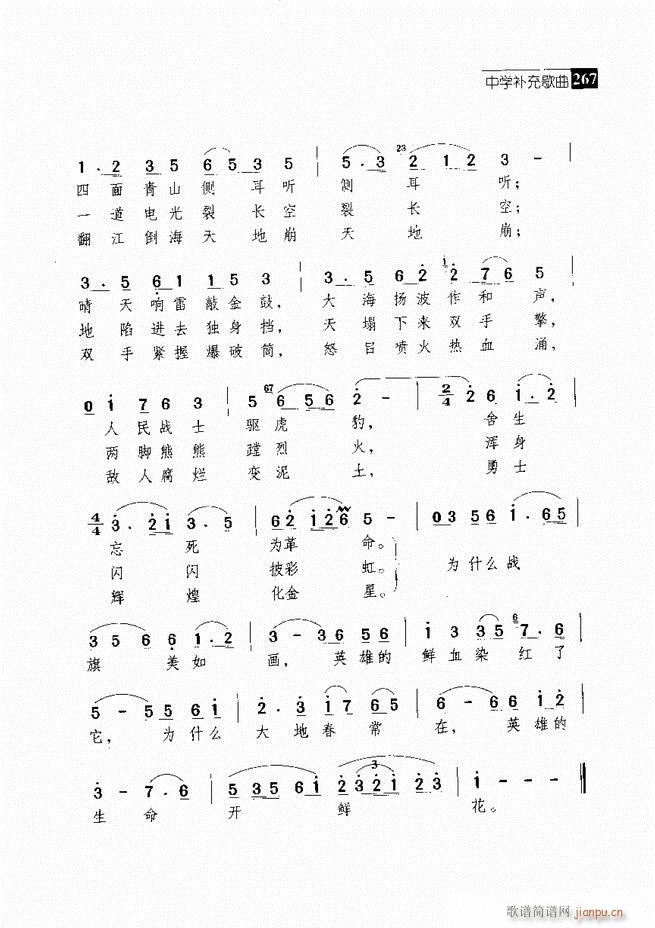 中学补充歌曲 267
1 . 2 3 5 6 5 3 5 | 5 . 3 23 2 1 2 3 - |
四面青山侧耳听 侧耳听;
一道电光裂长空 裂长空;
翻江倒海天地崩 天地崩;
3 . 5 6 1 1 5 3 | 3 . 5 6 2 2 7 6 5 |
晴天响雷敲金鼓, 大海扬波作和声,
地陷进去独身挡, 天塌下来双手擎,
双手紧握爆破筒, 怒目喷火热血涌,
0 i 7 6 3 | 5 67 6 5 6 | 2 - | 2/4 2 6 i . 2 |
人民战士 驱虎豹, 舍生
两脚熊熊 蹚烈火, 浑身
敌人腐烂 变泥土, 勇士
4/4 3 . 2 i 3 . 5 | 6 2 i 2 6 5 - | 0 3 5 6 i . 6 5 |
忘死 为革命。 为什么战
闪闪 披彩虹。
辉煌 化金星。
3 5 6 6 i . 2 | 3 - 3 6 5 6 | i 3 3 5 6 7 . 6 |
旗美如画, 英雄的鲜血染红了
5 - 5 5 6 i | 2 . 3 i 7 6 5 | 6 - 6 i 2 |
它, 为什么大地春常在, 英雄的
3 - 7 . 6 | 5 3 5 6 i 2 3 3 2 i 2 3 | i - - - ‖
生命开鲜花。
歌谱简谱网 jianpu.cn